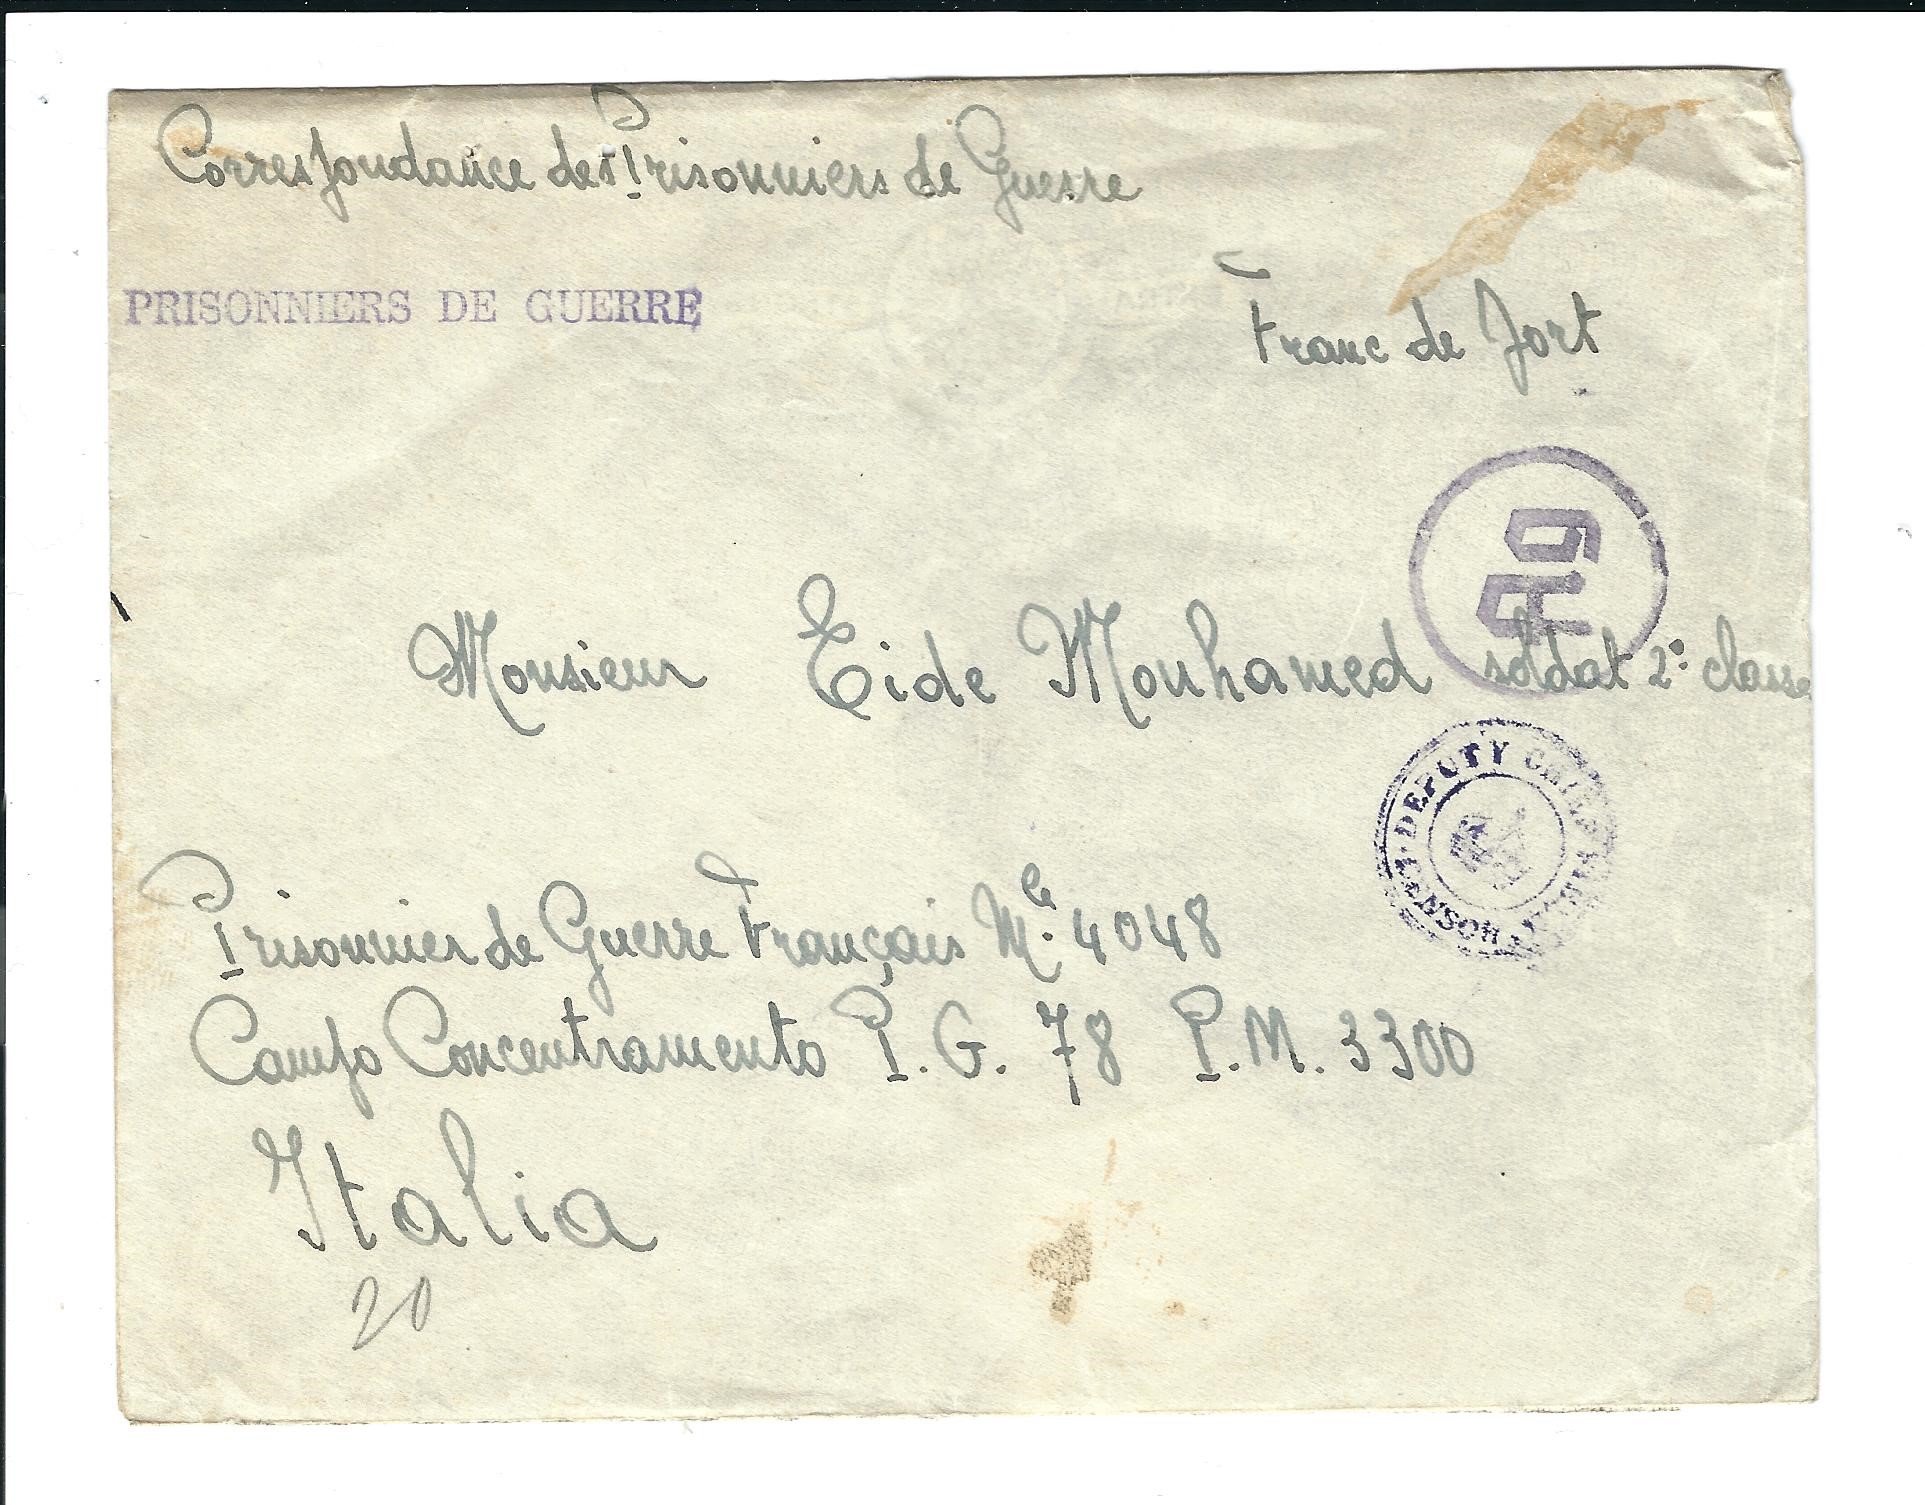 Correspondance des Prisonniers de Guerre
PRISONNIERS DE GUERRE
Franc de Port
Monsieur Eide Mouhamed soldat 2e classe
DEPUTY CHIEF CENSOR
Prisonnier de Guerre Français Mle 4048
Campo Concentramento P.G. 78 P.M. 3300
Italia
20